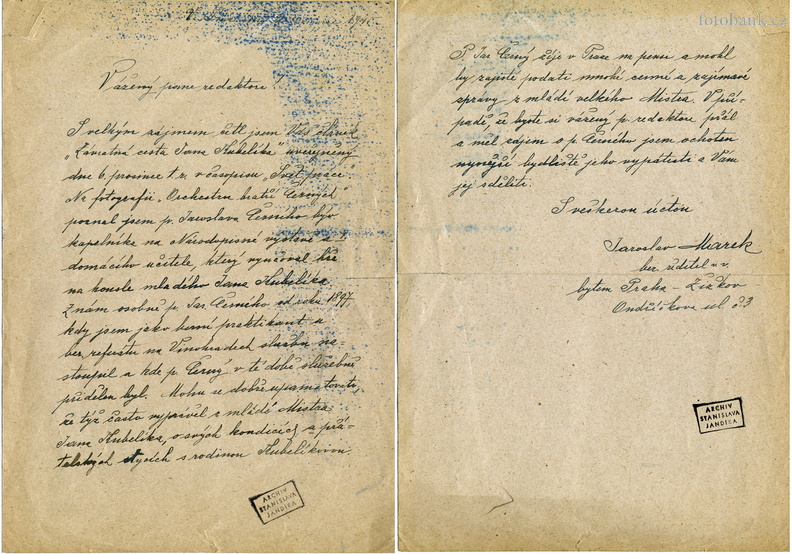 Vážený pane redaktore!
S velkým zájmem četl jsem Váš článek
„Závratná cesta Jana Kubelíka" uveřejněný
dne 6. prosince t.r. v časopisu „Svět práce
Na fotografii „Orchestru bratří Černých"
poznal jsem p. Jaroslava Černého býv.
kapelníka na Národopisné výstavě a I.
domácího učitele, který vyučoval hře
na housle mladého Jana Kubelíka.
Znám osobně p. Jar. Černého od roku 1897,
kdy jsem jako berní praktikant u
ber. referátu na Vinohradech službu na-
stoupil a kde p. Černý v té době služebně
přidělen byl. Mohu se dobře upamatovati,
že týž často vyprávěl z mládí Mistra
Jana Kubelíka, o svých kondicích a přá-
telských stycích s rodinou Kubelíkovou.
ARCHIV
STANISLAVA
JANDÍKA
fotobank.cz
P. Jar Černý žije v Praze na pensi a mohl
by zajisté podati mnohé cenné a zajímavé
zprávy z mládí velkého Mistra. V pří-
padě, že byste si vážený p. redaktore přál
a měl zájem o p. Černého jsem ochoten
nynější bydliště jeho vypátrati a Vám
jej sděliti.
S veškerou úctou
Jaroslav Marek
ber. ředitel v.v.
bytem Praha - Žižkov
Ondříčkova ul č 3
ARCHIV
STANISLAVA
JANDÍKA